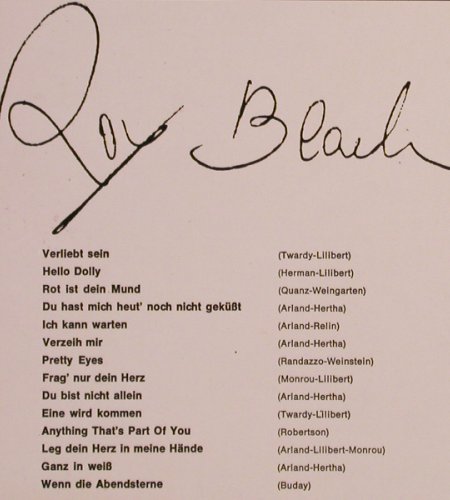 Roy Black
Verliebt sein (Twardy-Lilibert)
Hello Dolly (Herman-Lilibert)
Rot ist dein Mund (Quanz-Weingarten)
Du hast mich heut' noch nicht geküßt (Arland-Hertha)
Ich kann warten (Arland-Relin)
Verzeih mir (Arland-Hertha)
Pretty Eyes (Randazzo-Weinstein)
Frag' nur dein Herz (Monrou-Lilibert)
Du bist nicht allein (Arland-Hertha)
Eine wird kommen (Twardy-Lilibert)
Anything That's Part Of You (Robertson)
Leg dein Herz in meine Hände (Arland-Lilibert-Monrou)
Ganz in weiß (Arland-Hertha)
Wenn die Abendsterne (Buday)